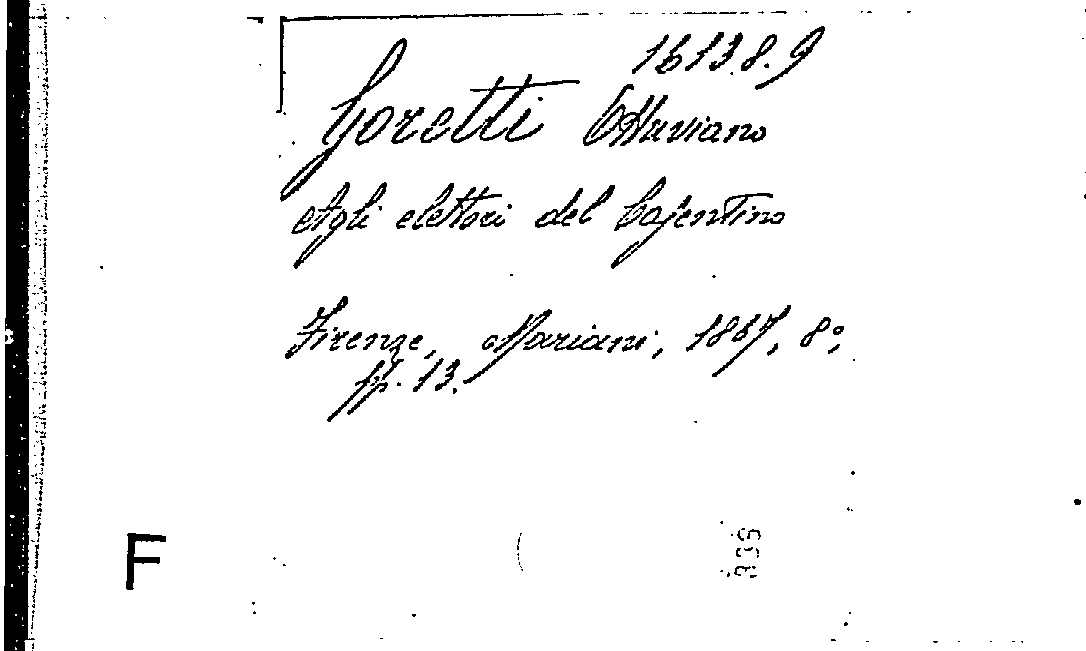 1613.8.9
Goretti Ottaviano
Agli elettori del Casentino
Firenze, Mariani, 1867, 8°,
pp. 13.
F